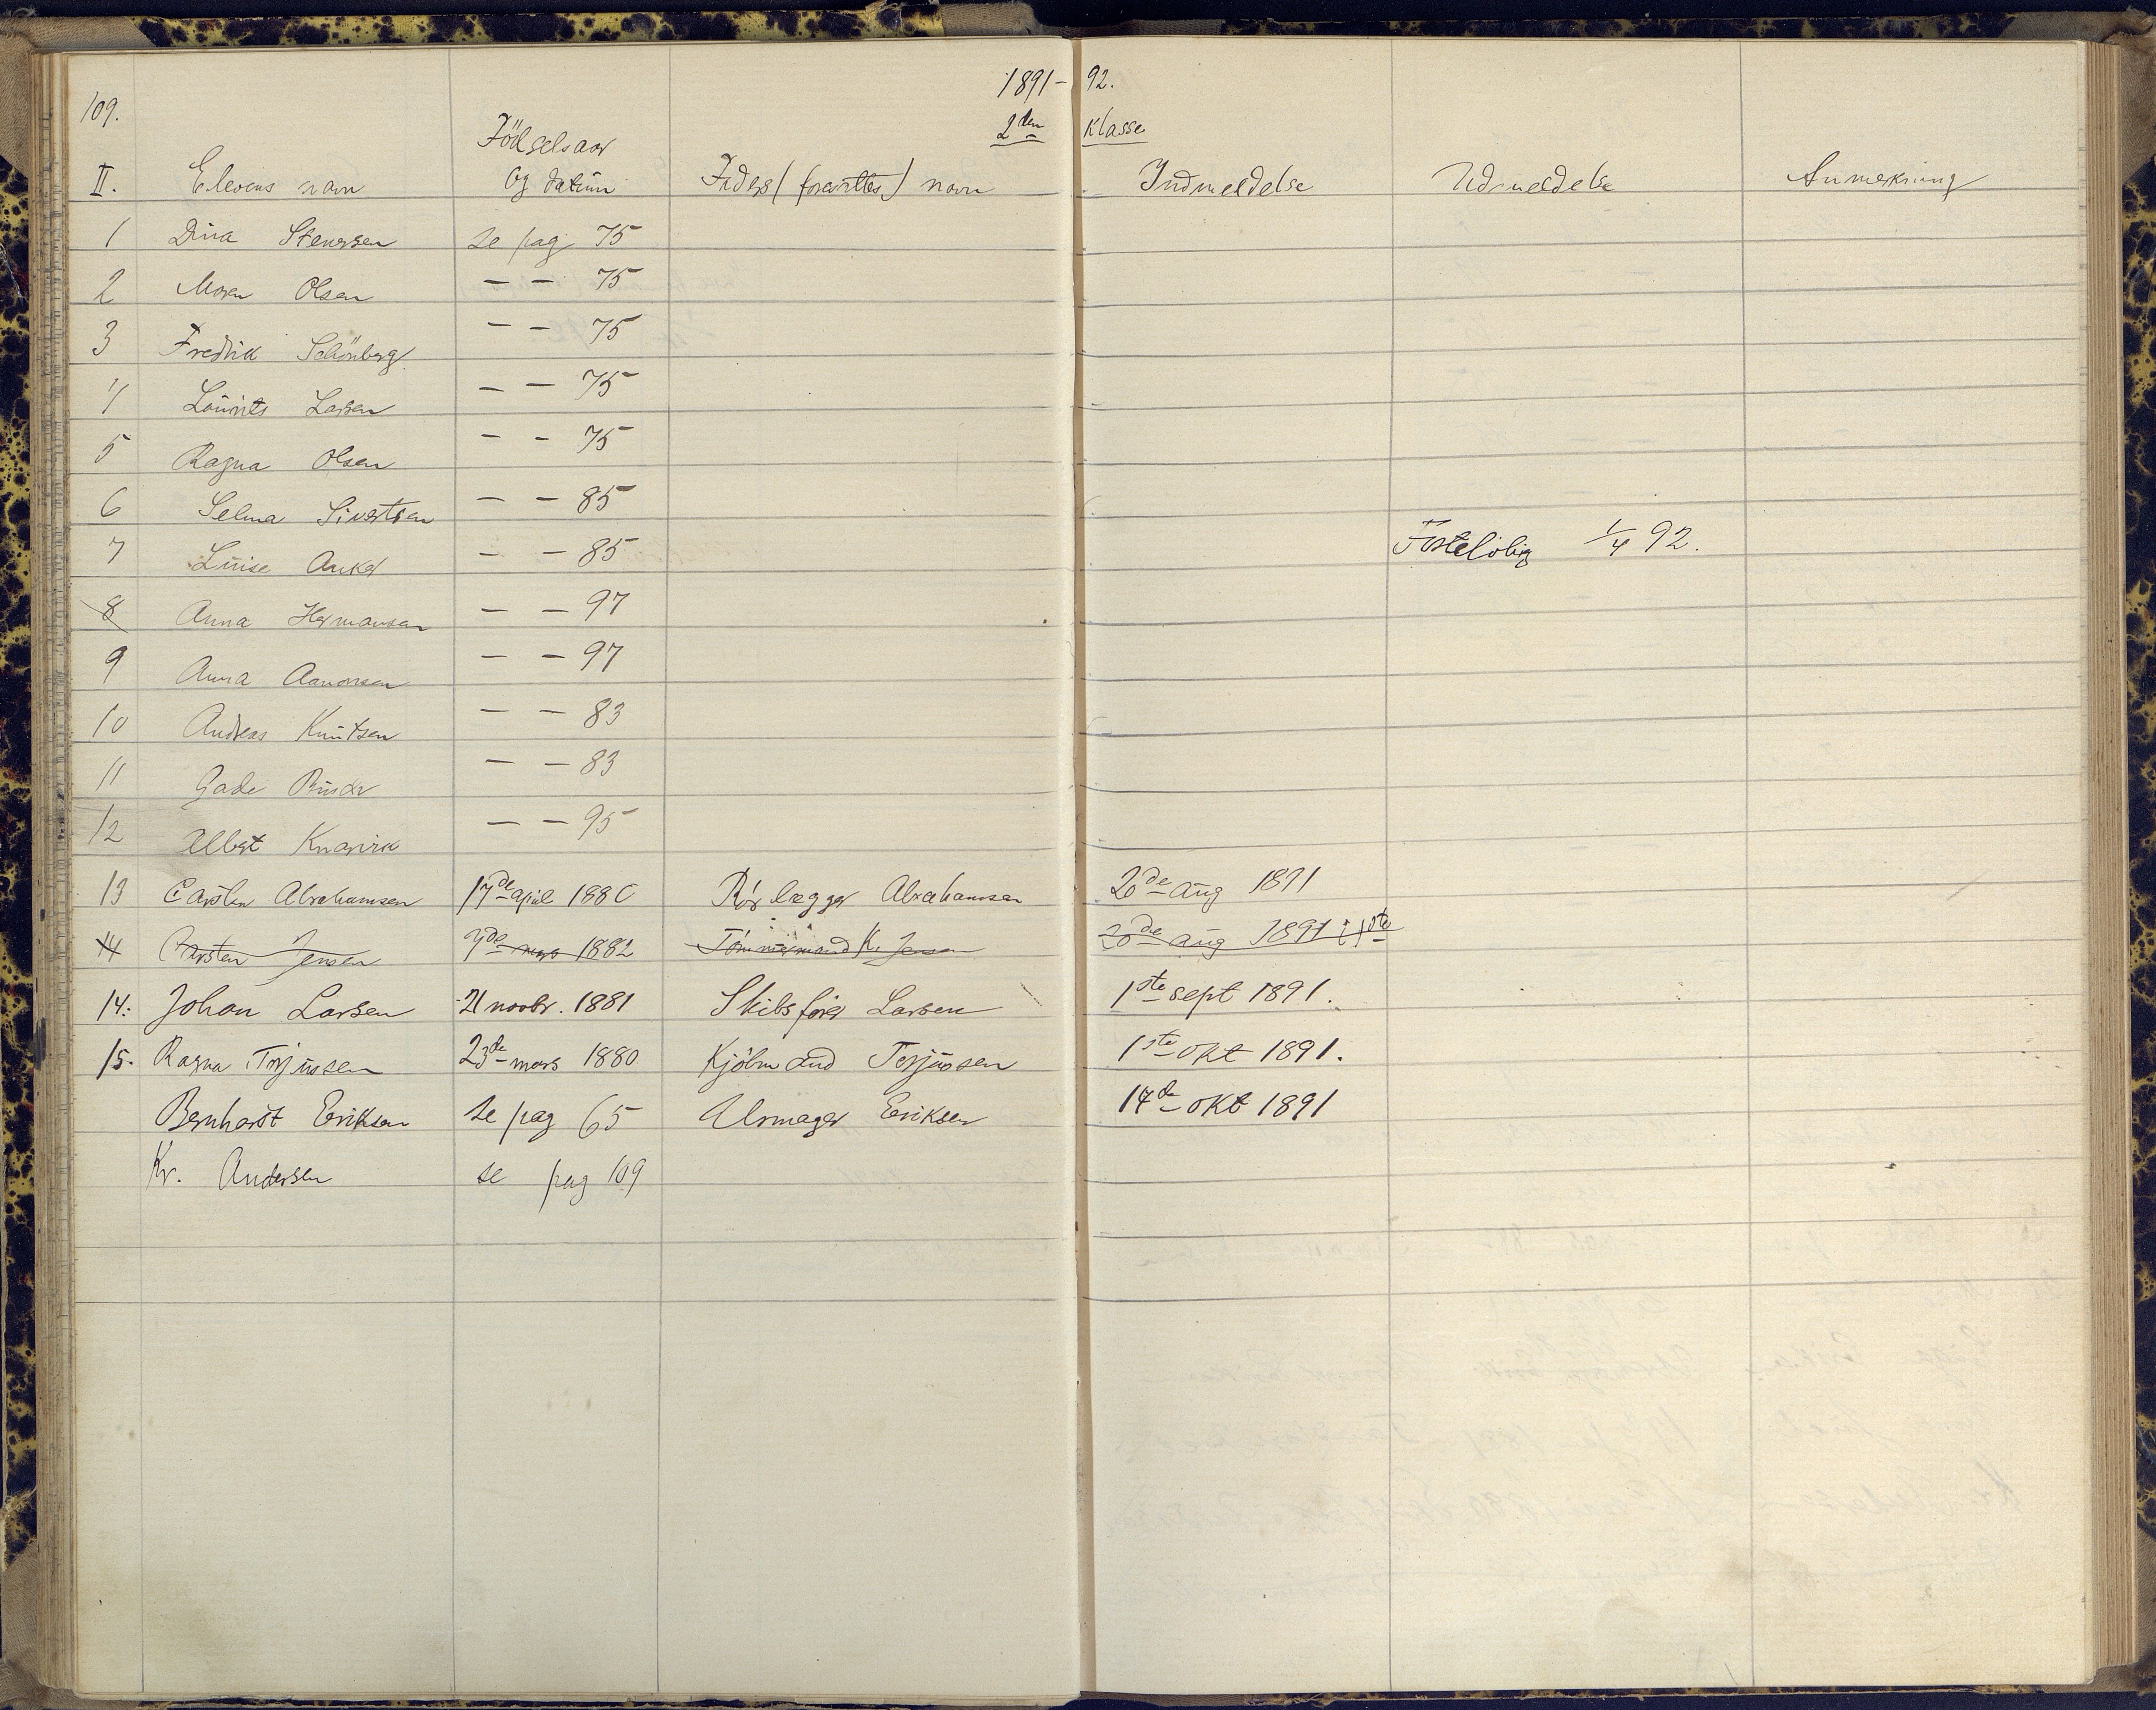 1891-92.
109.
2den Klasse
Födselsaar
II. Elevens navn Og datum Faders (foresattes) navn Indmeldelse Udmeldelse Anmerkning
1 Dina Stenersen se pag 75
2 Olsen — — 75
3 Fredrik Schönberg — — 75
4 Laurits Larsen — — 75
5 Ragna Olsen — — 75
6 Selma Sivertsen — — 85
7 Luise Anker — — 85 1/4 92.
8 Anna Hermansen — — 97
9 Anna Aanonsen — — 97
10 Andreas Knutsen — — 83
11 Gade — — 83
12 Albert Knarvik — — 95
13 Carsten Abrahamsen 17de april 1880 Rörlægger Abrahamsen 20de aug 1891
14 Carsten Jensen 7de mars 1882 Tömmermand K. Jensen 20de aug 1891 i 1ste
14: Johan Larsen 21 novbr. 1881 Skibsförer Larsen 1ste sept 1891.
15. Ragna Torjussen 23de mars 1880 Kjöbmand Torjussen 1ste okt 1891.
Bernhardt Eriksen se pag 65 Urmager Eriksen 14de okt 1891
Kr. Andersen se pag 109